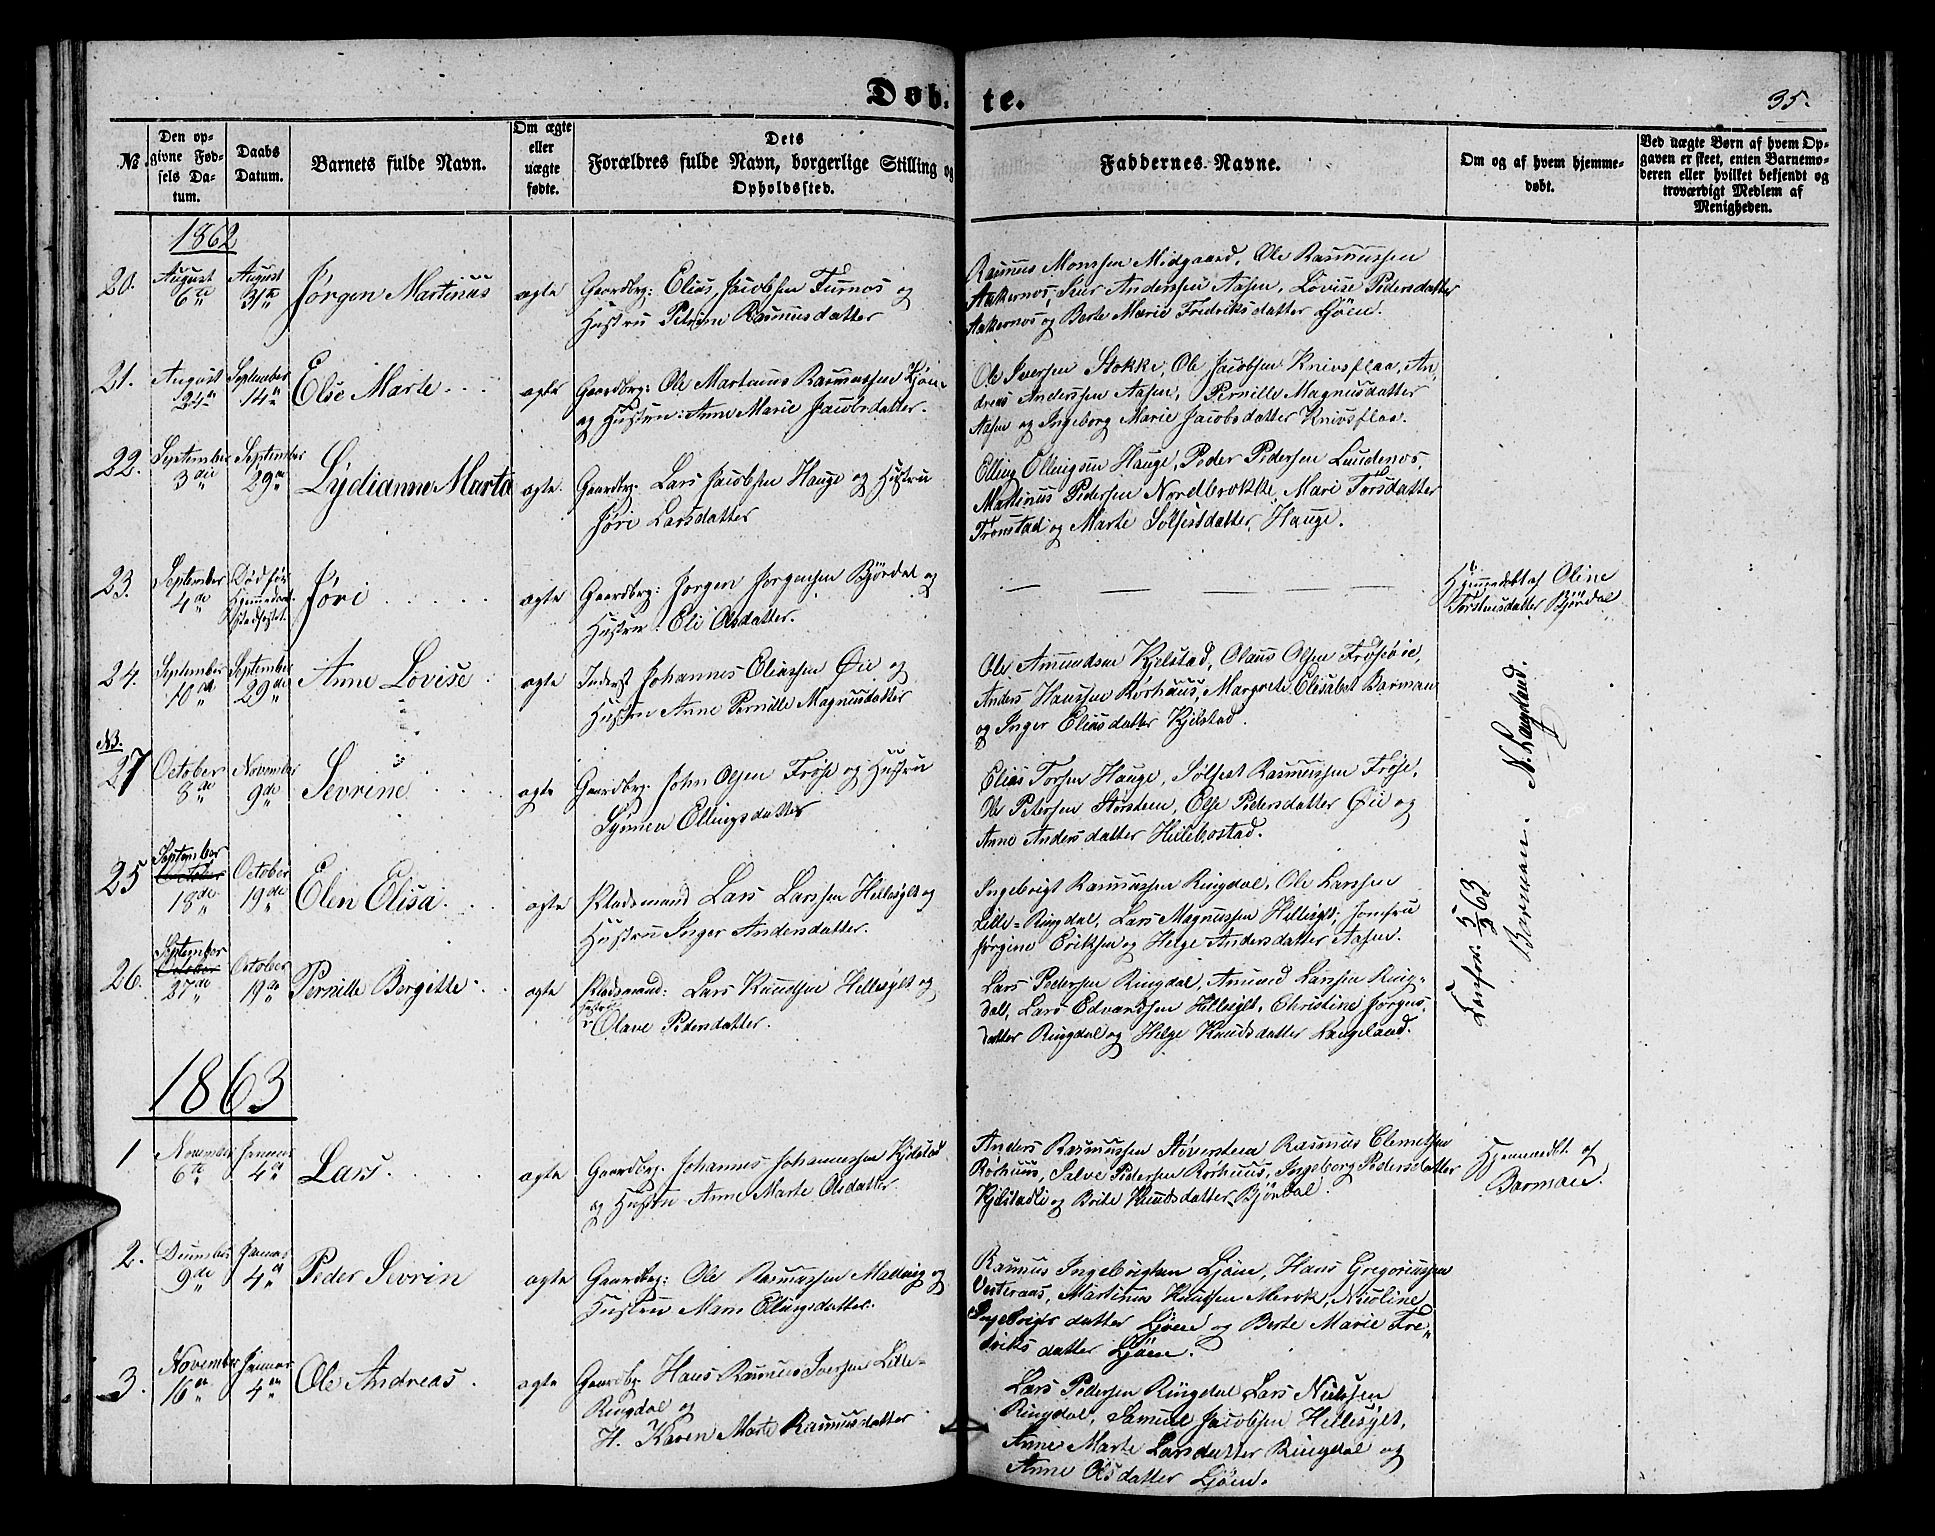 Døb-
te.
35.
No.
Den op-
givne Fød-
sels Da-
tum.
Daabs
Datum.
Barnets fulde Navn.
Om ægte
eller
uægte
fødte.
Dets
Forældres fulde Navn, borgerlige Stilling og
Opholdssted.
Faddernes Navne.
Om og af hvem hjemme-
døbt.
Ved uægte Børn af hvem Op-
gaven er skeet, enten Barnemo-
deren eller hvilket bekjendt og
troværdigt Medlem af
Menigheden.
1862
20.
August
6te
August
31te
Jørgen Martinus
ægte
Gaardbrg: Elias Jacobsen Furnæs og
Hustru Petrine Rasmusdatter
Rasmus Monssen Midgaard, Ole Rasmussen
Aakernæs, Iver Anderssen Aasen, Lovise Pedersdatter
Aakernæs og Berte Marie Fredriksdatter Ljøen.
21.
August
24de
September
14de
Else Marte
ægte
Gaardbrg: Ole Martinus Rasmussen Ljøen
og Hustru: Anne Marie Jacobsdatter.
Ole Iversen Stokke, Ole Jacobsen Knivsflaa, An-
dreas Anderssen Aasen, Pernille Magnusdatter
Aasen og Ingeborg Marie Jacobsdatter Knivsflaa.
22.
September
3die
September
29de
Lydianne Marta
ægte.
Gaardbrg. Lars Jacobsen Hauge og Hustru
Jøri Larsdatter
Elling Ellingsen Hauge, Peder Pedersen Lundenes,
Martinus Pedersen Nordbrekke, Mari Torsdatter
Tronstad og Marte Solfestdatter Hauge.
23.
September
4de
Død før
Hjemmedaab.
Stadfæstet.
Jøri
ægte
Gaardbrg: Jørgen Jørgensen Bjørdal og
Hustru: Eli Olsdatter.
Hjemmedøbt af Oline
Torstensdatter Bjørdal
24.
September
10de
September
29de
Anne Lovise
ægte
Inderst Johannes Eliassen Øie og
Hustru Anne Pernille Magnusdatter
Ole Amundsen Kjelstad, Olaus Olsen Frøseøie,
Anders Hanssen Rørhuus, Margrete Elisabet Barman
og Inger Eliasdatter Kjelstad.
NB.
27
October
8de
November
9de
Sevrine
ægte
Gaardbrg. John Olsen Frøse og Hustru
Synnev Ellingsdatter
Elias Torsen Hauge, Sølfest Rasmussen Frøse,
Ole Petersen Storsteen, Else Pedersdatter Øie og
Anne Andersdatter Hellebostad.
25
September
October
18de
October
19de
Elen Elisa
ægte
Pladsmand Lars Larssen Hellesylt og
Hustru Inger Andersdatter.
Ingebrigt Rasmussen Ringdal, Ole Larssen
Lille-Ringdal, Lars Magnussen Hellesylt, Jomfru
Jørgine Eriksen og Helge Andersdatter Aasen.
26.
September
October
27de
October
19de
Pernille Bergitte
ægte
Pladsmand: Lars Knudsen Hellesylt og
Hustru Olave Pedersdatter.
Lars Pedersen Ringdal, Amund Larssen Ring-
dal, Lars Edvardsen Hellesylt, Christine Jørgens-
datter Ringdal og Helge Knudsdatter Langeland.
Barman. N. Langeland.
1863
1
November
6te
Januar
4de
Lars
ægte
Gaardbrg. Johannes Johannessen Kjelstad
og Hustru Anne Marte Olsdatter
Anders Rasmussen Støversteen Rasmus Clemetsen
Rørhuus, Salve Pedersen Rørhuus, Ingeborg Pedersdatter
Kjelstadli og Brite Knudsdatter Bjørdal.
Hjemmedbt. af
Barman.
2.
December
9de
Januar
4de
Peder Sevrin
ægte
Gaardbrg: Ole Rasmussen Madvig og
Hustru Marie Ellingsdatter.
Rasmus Ingebrigtsen Ljøen, Hans Gregoriussen
Vesteraas, Martinus Knudsen Merok, Nicoline
Ingebrigtsdatter Ljøen og Berte Marie Fre-
driksdatter Ljøen.
3.
November
16de
Januar
4de
Ole Andreas
ægte
Gaardbrg. Hans Rasmus Iversen Lille-
Ringdal og
H. Karen Marte Rasmusdatter
Lars Pedersen Ringdal, Lars Nielssen
Ringdal, Samuel Jacobsen Hellesylt,
Anne Marte Larsdatter Ringdal og
Anne Olsdatter Ljøen.